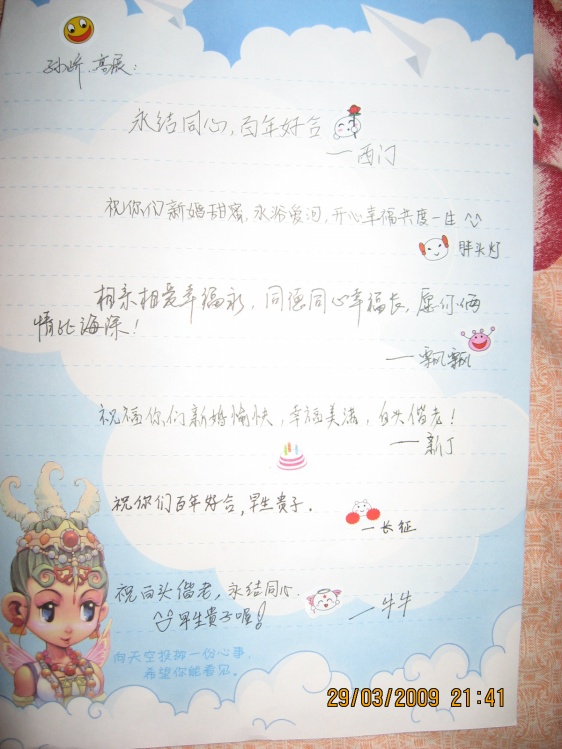 孙娇、高辰：
永结同心，百年好合
—西门
祝你们新婚甜蜜，永浴爱河，开心幸福共度一生^^
胖头灯
相亲相爱幸福永，同德同心幸福长，愿你俩
情比海深！
—飘飘
祝福你们新婚愉快，幸福美满，白头偕老！
—新丁
祝你们百年好合，早生贵子．
—长征
祝百头偕老，永结同心．
早生贵子喔！
—牛牛
向天空投掷一份心事，
希望你能看见。
29/03/2009 21:41